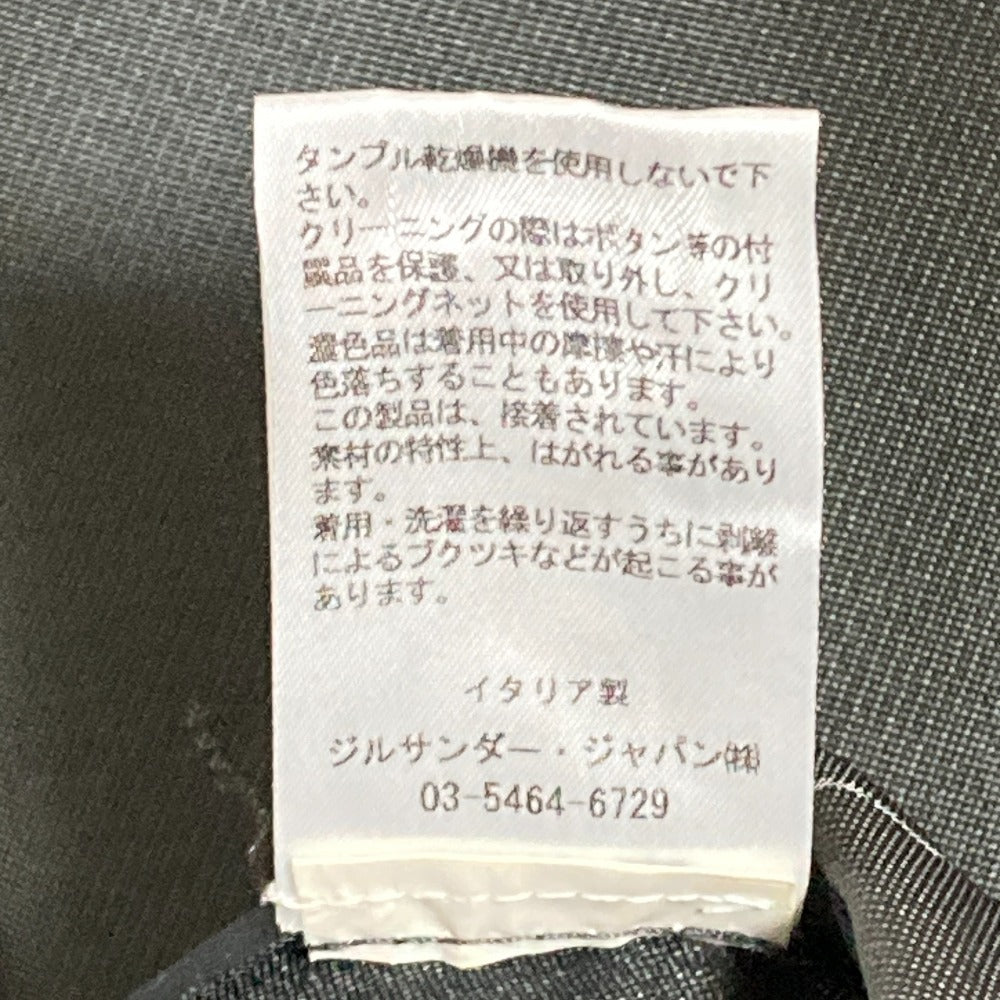 タンブル乾燥機を使用しないで下
さい。
クリーニングの際はボタン等の付
属品を保護、又は取り外し、クリ
ーニングネットを使用して下さい。
濃色品は着用中の摩擦や汗により
色落ちすることもあります。
この製品は、接着されています。
素材の特性上、はがれる事があり
ます。
着用・洗濯を繰り返すうちに剥離
によるブクツキなどが起こる事が
あります。
イタリア製
ジルサンダー・ジャパン㈱
03-5464-6729